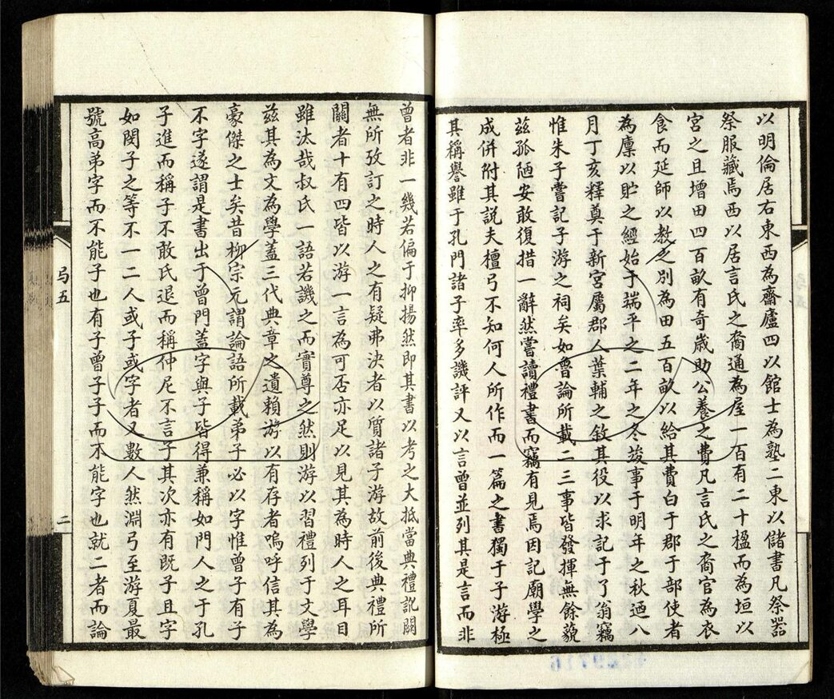 以明倫居右東西為齋廬四以館士為塾二東以儲書凡祭器
祭服藏焉西以居言氏之裔通為屋一百有二十楹而為垣以
宮之且增田四百畝有奇歲助公養之費凡言氏之裔官為衣
食而延師以教之別為田五百畝以給其費白于郡于部使者
為廩以貯之經始于端平之二年之冬竣事于明年之秋迺八
月丁亥釋奠于新宮屬郡人葉輔之敘其役以求記于了翁竊
惟朱子嘗記子游之祠矣如魯論所載二三事皆發揮無餘藐
茲孤陋安敢復措一辭然嘗讀禮書而竊有見焉因記廟學之
成併附其說夫檀弓不知何人所作而一篇之書獨于子游極
其稱譽雖于孔門諸子率多譏評又以言曾並列其是言而非
曾者非一幾若偏于抑揚然即其書以考之大抵當典禮訛闕
無所攷訂之時人之有疑弗決者以質諸子游故前後典禮所
關者十有四皆以游一言為可否亦足以見其為時人之耳目
雖汰哉叔氏一語若譏之而實尊之然則游以習禮列于文學
茲其為文為學蓋三代典章之遺賴游以有存者嗚呼信其為
豪傑之士矣昔柳宗元謂論語所載弟子必以字惟曾子有子
不字遂謂是書出于曾門蓋字與子皆得兼稱如門人之于孔
子進而稱子不敢氏退而稱仲尼不言子其次亦有既子且字
如閔子之等不一二人或子或字者又數人然淵弓至游夏最
號高弟字而不能子也有子曾子子而不能字也就二者而論
弓五
二